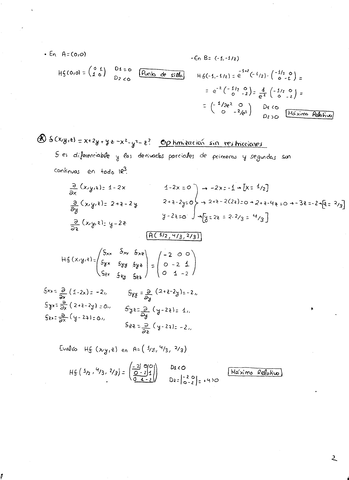 · En A=(0,0)
Hf(0,0) = (0 1 / 1 0) D1=0 D2<0 Punto de silla
- En B=(-1,-1/2)
Hf(-1,-1/2) =
Máximo Relativo
f(x,y,z) = x+2y+yz-x²-y²-z² Optimización sin restricciones
f es diferenciable y las derivadas parciales de primeras y segundas son
continuas en todo R³.
∂/∂x (x,y,z): 1-2x
∂/∂y (x,y,z): 2+z-2y
∂/∂z (x,y,z): y-2z
1-2x=0 → -2x=-1 → x=1/2
2+z-2y=0 → 2+z-2(2z)=0 → 2+z-4z=0 → -3z=-2 → z=2/3
y-2z=0 → y=2z=2·2/3=4/3
A(1/2, 4/3, 2/3)
Hf(x,y,z) = (fxx fxy fxz / fyx fyy fyz / fzx fzy fzz) = (-2 0 0 / 0 -2 1 / 0 1 -2)
fxx = ∂/∂x (1-2x) = -2
fyx = ∂/∂x (2+z-2y) = 0
fzx = ∂/∂x (y-2z) = 0
fyy = ∂/∂y (2+z-2y) = -2
fyz = ∂/∂y (y-2z) = 1
fzz = ∂/∂z (y-2z) = -2
Evalúo Hf (x,y,z) en A=(1/2, 4/3, 2/3)
Hf(1/2, 4/3, 2/3) = (-2 0 0 / 0 -2 1 / 0 1 -2) D1<0
D2=|-2 0 / 0 -2| = +4>0
Máximo Relativo
2